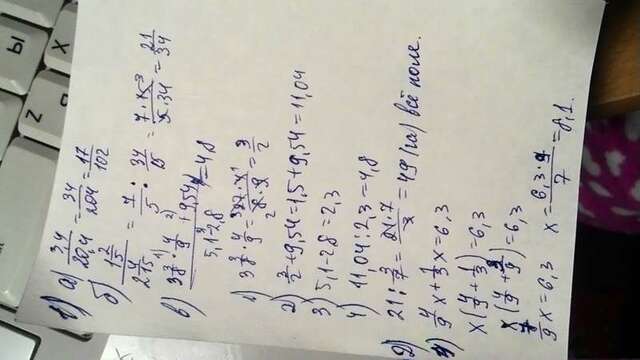 1) а) 3,4/20,4 = 34/204 = 17/102
б) 1 2/5 / 2 4/15 = 7/5 · 34/15 = 7·15³/5·34 = 21/34
в) 3 3/8 · 4/9 + 9,54 / 5,1-2,8 = 4,8
1) 3 3/8 · 4/9 = 27·4/8·9 = 3/2
2) 3/2 + 9,54 = 1,5 + 9,54 = 11,04
3) 5,1-2,8 = 2,3
4) 11,04 : 2,3 = 4,8
2) 21 : 3/7 = 21·7/3 = 49 (га) всё поле.
4/9 x + 1/3 x = 6,3
x(4/9 + 1/3) = 6,3
x(4/9 + 3/9) = 6,3
7/9 x = 6,3 x = 6,3·9/7 = 8,1.
Ы
X
Z